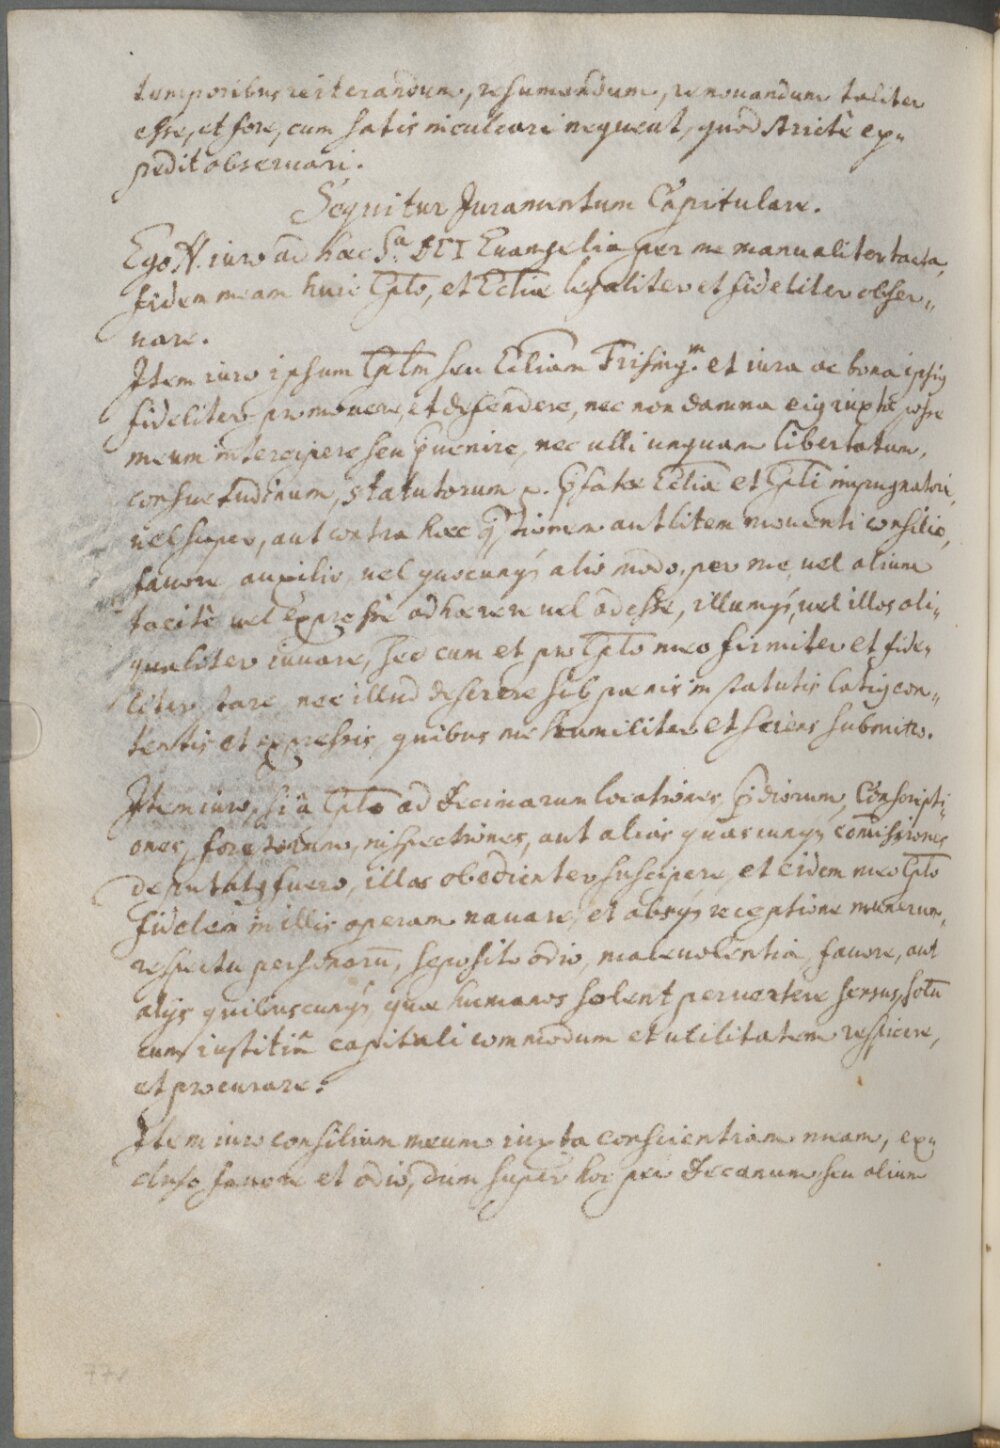 temporibus reiterandum, resumendum, renouandum taliter
esse, et fore, cum satis inculcari nequeat, quod strictè ex„
pedit obseruari.
Sequitur Juramentum Capitulare.
Ego N. iuro ad haec Sa. DEI Euangelia per me manualiter tacta,
fidem meam huic Cplo, et Ecliae legaliter et fideliter obser„
uare.
Item iuro ipsum Cplm seu Ecliam Frising.m et iura ac bona ipsius
fideliter promouere, et defendere, nec non damna eius iuxta posse
meum intercipere seu puenire, nec ulli unquam libertatum,
consuetudinum, statutorum pfatae Ecliae et Cpli impugnatori,
uel super, aut contra haec qtionem aut litem mouenti consilio,
fauore auxilio, uel quocunq3 alio modo, per me, uel alium
tacitè uel expressè adhaerere uel adesse, illumq3, uel illos ali„
qualiter iuuare, sed cum et pro Cplo meo firmiter et fide„
liter stare nec illud deserere sub poenis in statutis latius con„
tentis et expressis, quibus me humiliter et sciens submitto.
Item iuro, si à Cplo ad decimarum locationes, pdiorum, Conscripti„
ones, foretorum, inspectiones, aut alias quascunq3 comissiones
deputatus fuero, illas obedienter suscipere, et eidem meo Cplo
fidelem in illis operam nauare, et absq3 receptione munerum,
respectu personarum, seposito odio, maleuolentia, fauore, aut
alijs quibuscunq3, quae humanos solent peruertere sensus, solu
cum iustitia capituli commodum et utilitatem respicere,
et procurare.
Item iuro consilium meum iuxta conscientiam meam, ex„
cluso fauore et odio, dum super hoc per decanum seu alium